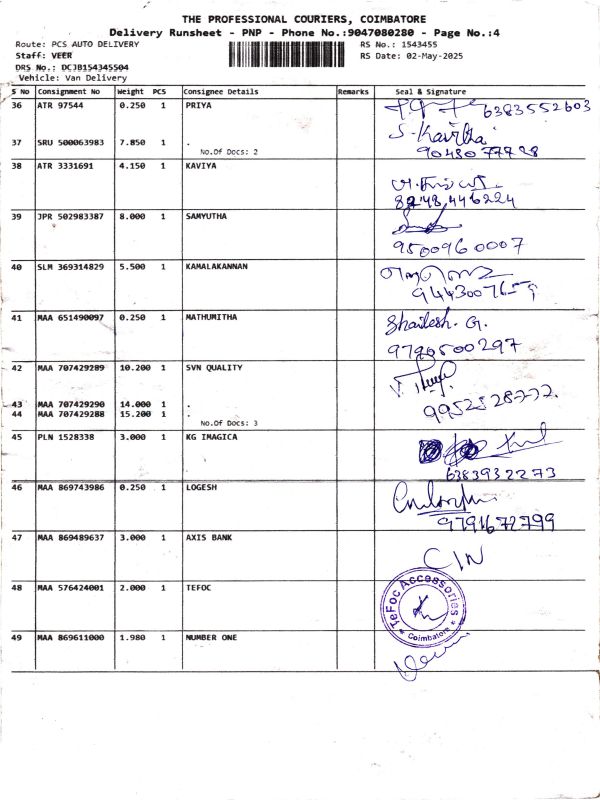 THE PROFESSIONAL COURIERS, COIMBATORE
Delivery Runsheet - PNP - Phone No.:9047080280 - Page No.:4
Route: PCS AUTO DELIVERY
RS No.: 1543455
Staff: VEER
RS Date: 02-May-2025
DRS No.: DCJB154345504
Vehicle: Van Delivery
S No Consignment No Weight PCS Consignee Details Remarks Seal & Signature
36 ATR 97544 0.250 1 PRIYA 6383552603
37 SRU 500063983 7.850 1 . S. Kavitha
No.Of Docs: 2 90430 77728
38 ATR 3331691 4.150 1 KAVIYA
8248,446224
39 JPR 502983387 8.000 1 SAMYUTHA
9500960007
40 SLM 369314829 5.500 1 KAMALAKANNAN
41 MAA 651490097 0.250 1 MATHUMITHA Shailesh. G.
9790500297
42 MAA 707429289 10.200 1 SVN QUALITY
43 MAA 707429290 14.000 1 .
44 MAA 707429288 15.200 1 .
No.Of Docs: 3
45 PLN 1528338 3.000 1 KG IMAGICA
6383932273
46 MAA 869743986 0.250 1 LOGESH
9791672799
47 MAA 869489637 3.000 1 AXIS BANK
48 MAA 576424001 2.000 1 TEFOC
TeFoc Accessories
Coimbatore
49 MAA 869611000 1.980 1 NUMBER ONE